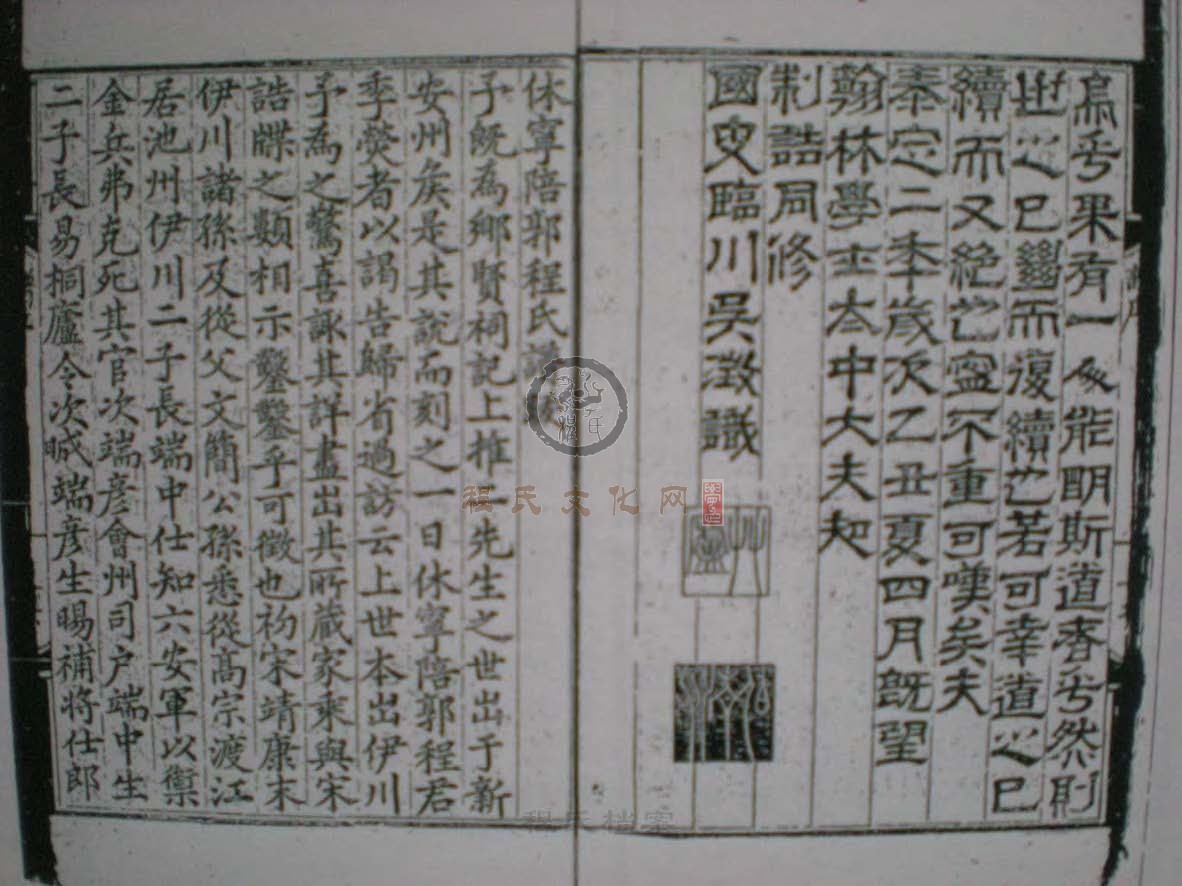 烏乎果有一人能明斯道者乎然則
世之已繼而復續也若可幸道之已
續而又絕也寧不重可嘆矣夫
泰定二年歲次乙丑夏四月既望
翰林學士太中大夫知
制誥同修
國史臨川吳澂識
休寧陪郭程氏譜
予既為鄉賢祠記上推二先生之世出于新
安州矣是其說而刻之一日休寧陪郭程君
季熒者以謁告歸省過訪云上世本出伊川
予為之驚喜諏其詳盡出其所藏家乘與宋
誥牒之類相示鑿鑿乎可徵也初宋靖康末
伊川諸孫及從父文簡公孫悉從高宗渡江
居池州伊川二子長端中仕知六安軍以禦
金兵弗克死其官次端彥會州司户端中生
二子長易桐廬令次晠端彥生暘補將仕郎
程氏文化网
程氏档案